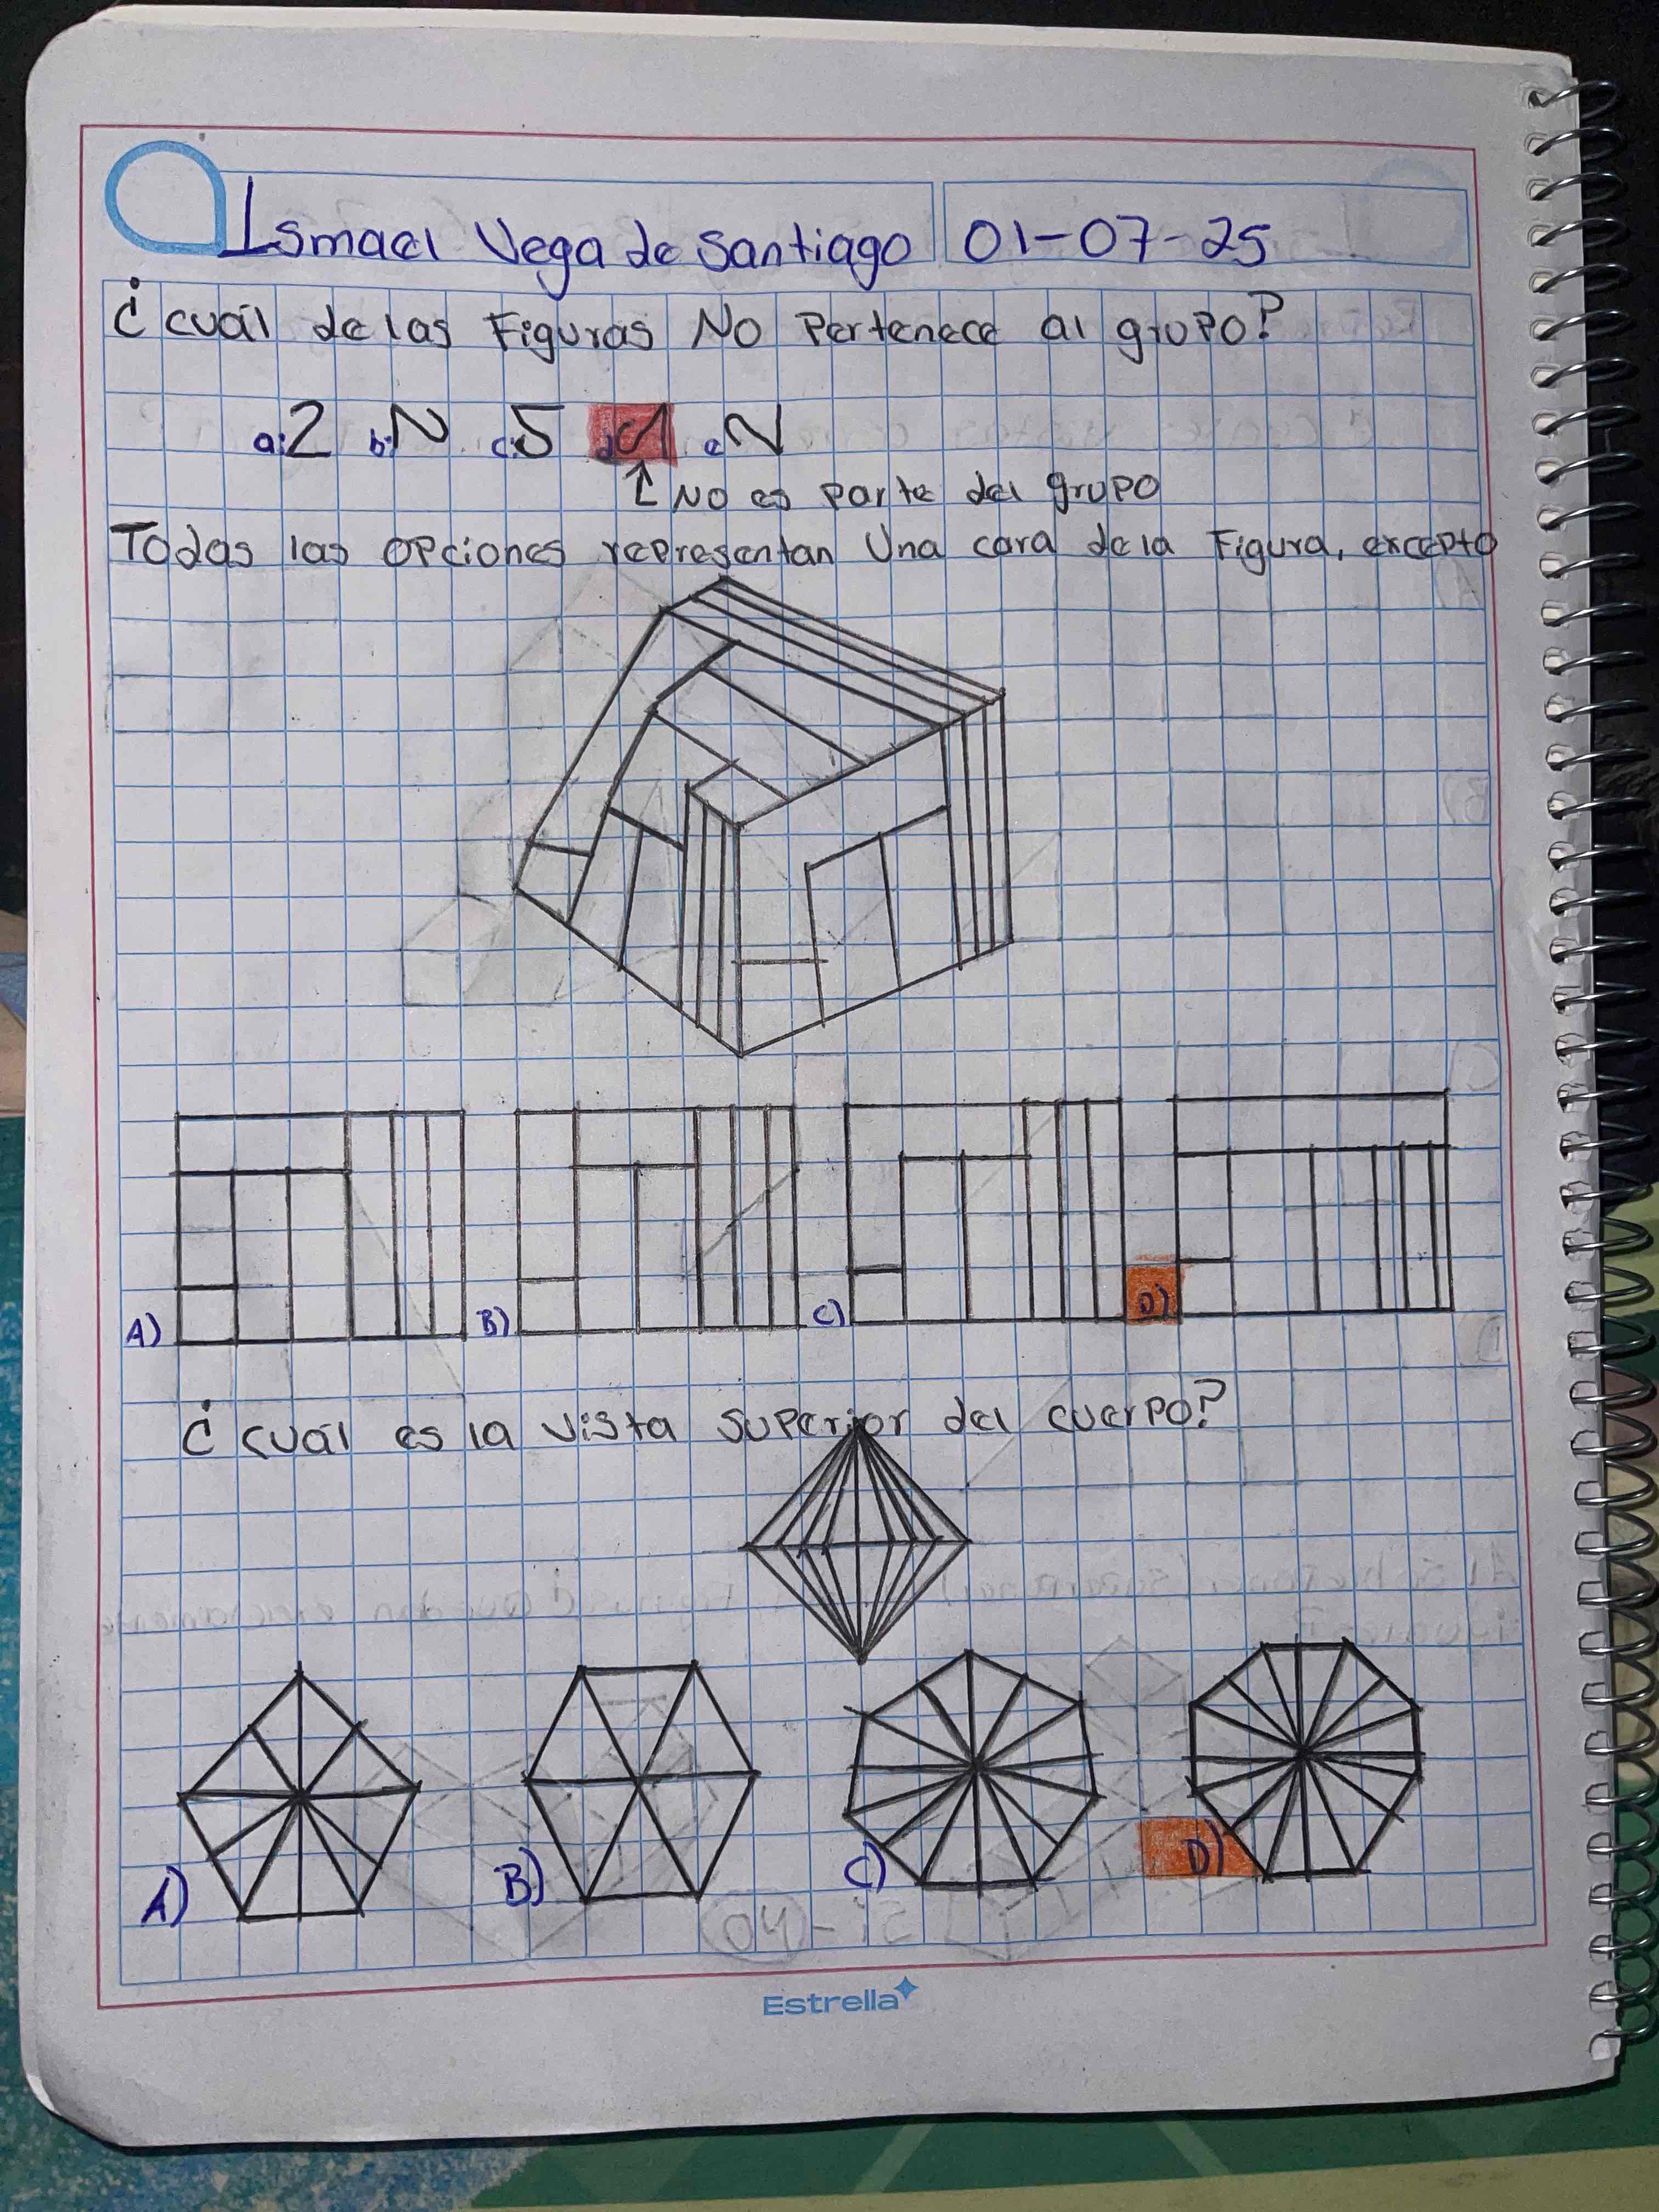 Ismael Vega de Santiago 01-07-25
¿cuál de las Figuras No Pertenece al grupo?
a: 2 b: N c: 5 d: e: N
↑ No es parte del grupo
Todas las opciones representan Una cara de la Figura, excepto
A) B) C) D)
¿cuál es la vista superior del cuerpo?
A) B) C) D)
Estrella